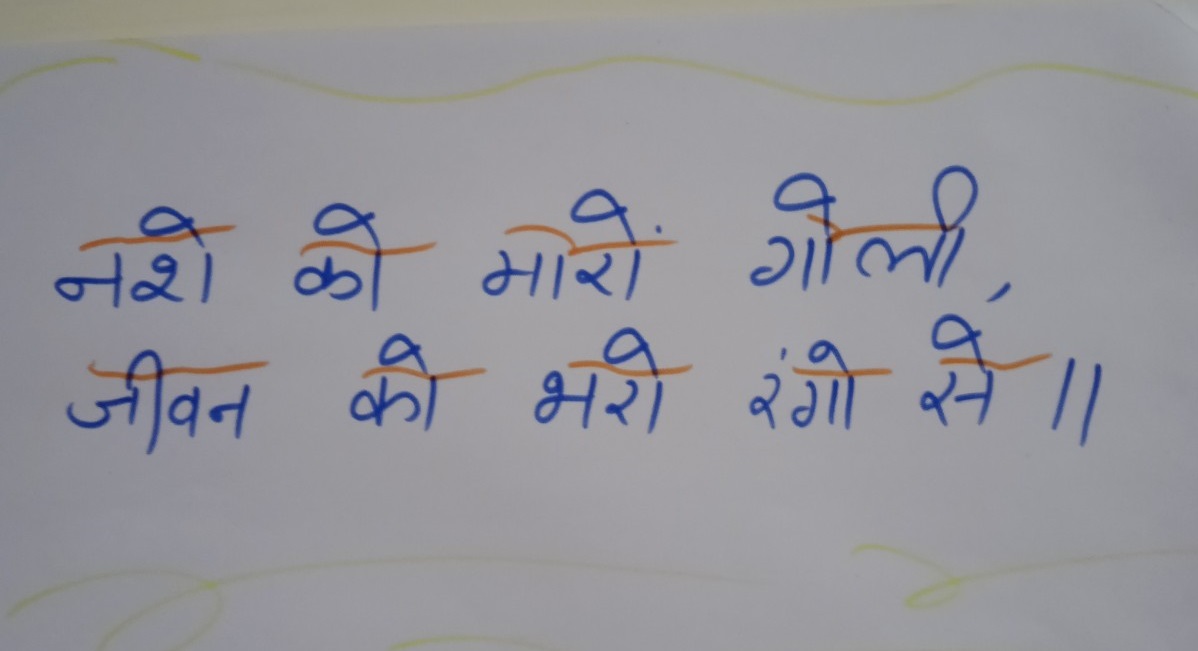 नशे को मारों गोली,
जीवन को भरो रंगो से ॥